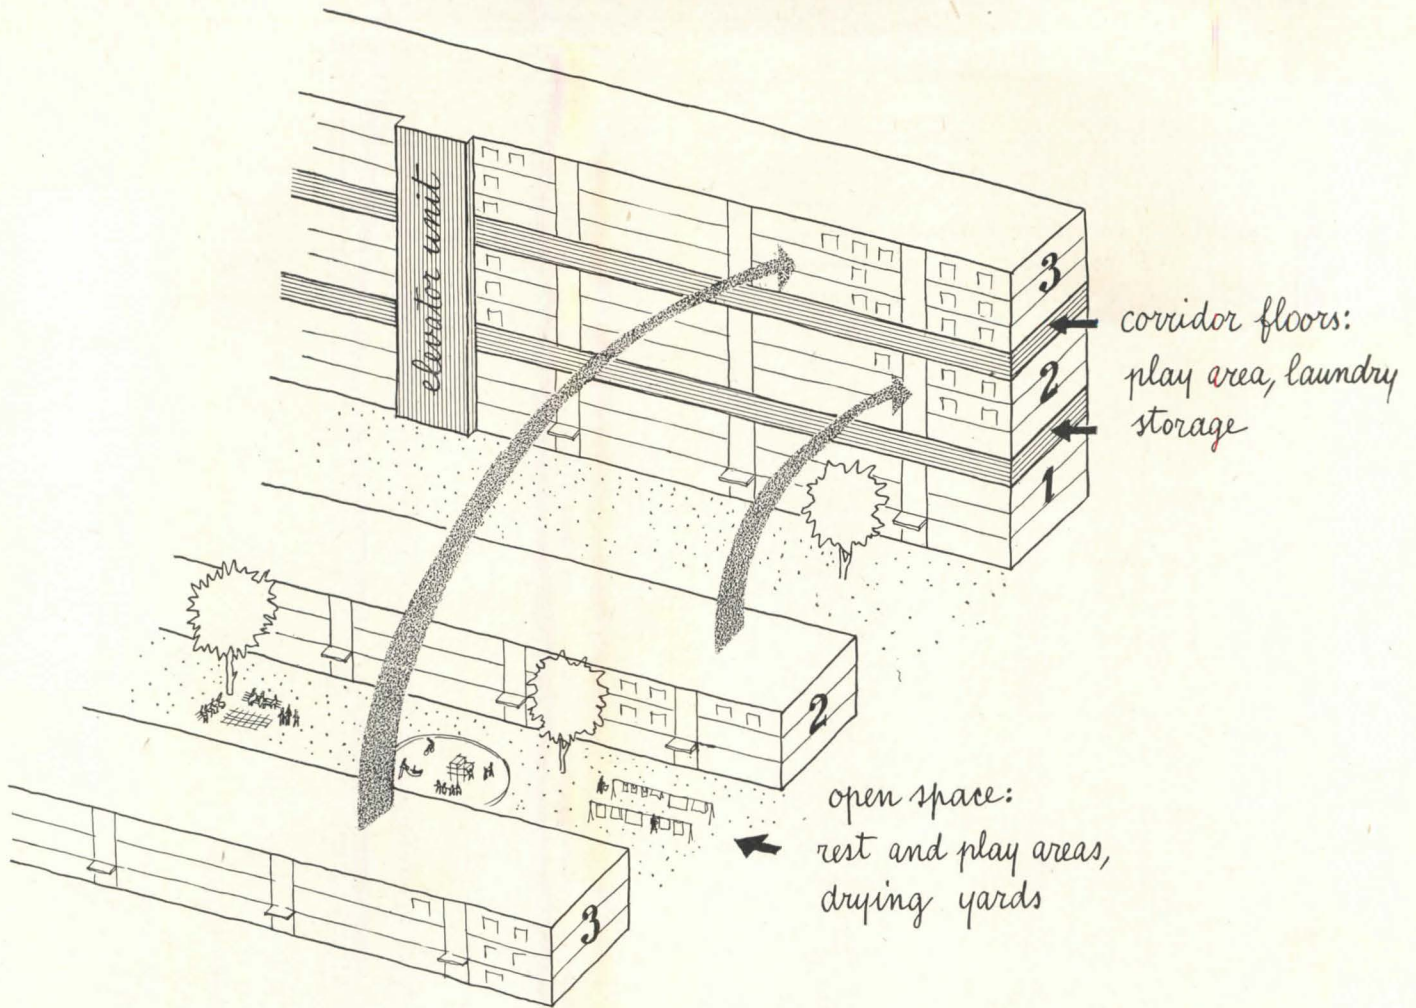 elevator unit
3
2
1
corridor floors:
play area, laundry
storage
2
open space:
rest and play areas,
drying yards
3